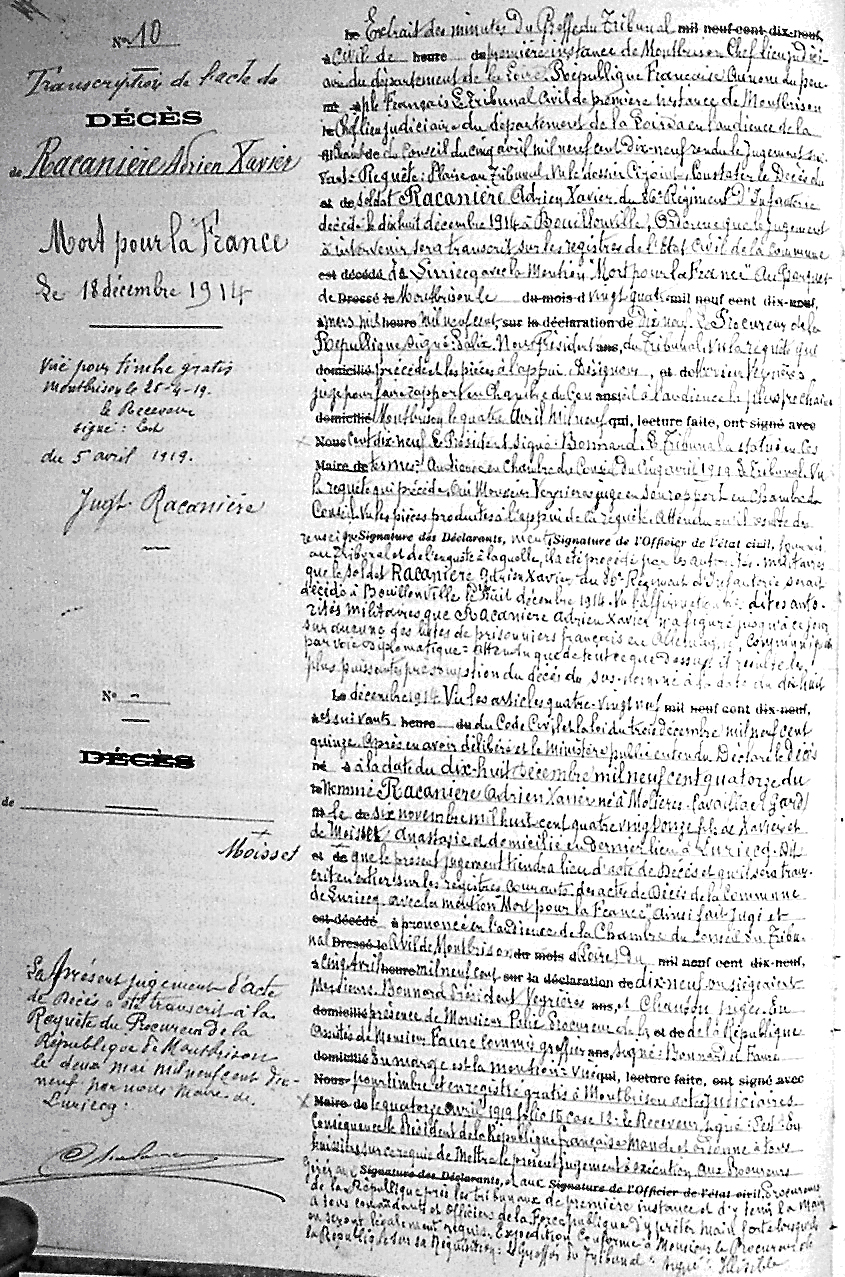 No 10
Transcription de l'acte de
DÉCÈS
de Racanière Adrien Xavier
Mort pour la France
Le 18 décembre 1914
Visé pour timbre gratis
Montbrison le 25-4-19.
le Receveur
signé :
du 5 avril 1919.
Jugt Racanière
No
DÉCÈS
de
Moisset
Le Présent jugement d'acte
de Décès a été transcrit à la
Requête du Procureur de la
République de Montbrison
le deux mai mil neuf cent dix-
neuf par nous Maire de
Luriecq.
Le Extrait des minutes du Greffe du Tribunal mil neuf cent dix-neuf,
à Civil de heure de première instance de Montbrison Chef lieu judici-
aire du département de la Loire. République Française Au nom du peu-
ple Français Le Tribunal Civil de première instance de Montbrison
Chef lieu judiciaire du département de la Loire a en l'audience de la
Chambre du Conseil du cinq avril mil neuf cent dix-neuf rendu le Jugement sui-
vant : Requête : Plaise au Tribunal Vu le dossier ci-joint Constater le Décès du
et de soldat Racanière Adrien Xavier du 86e Régiment d'Infanterie
décédé le dix huit décembre 1914 à Bouillonville, Ordonne que le jugement
à intervenir sera transcrit sur les registres de l'Etat Civil de la Commune
est décédé de Luriecq avec la Mention "Mort pour la France" Au Parquet
de Dressé le Montbrison le du mois d vingt quatre mil neuf cent dix-neuf,
à mars mil heure mil neuf cent, sur la déclaration de Dix neuf Le Procureur de la
République signé : Nous Président ans, du Tribunal Vu la requête qui
domicilié précède et les pièces à l'appui Désignons et de Verrières
juge pour faire rapport en Chambre du Conseil à l'audience la plus prochaine
domicilié Montbrison le quatre Avril Mil neuf qui, lecture faite, ont signé avec
Nous Cent dix-neuf Le Président signé : Bonnard Le Tribunal a statué en ces
Maire de termes : Audience en Chambre du Conseil du Cinq avril 1919 Le Tribunal Vu
la requête qui précède, Oui Monsieur juge en son rapport en Chambre du
Conseil. Vu les pièces produites à l'appui de la requête. Attendu qu'il résulte des
Signature des Déclarants, Signature de l'Officier de l'état civil,
au Tribunal et de l'enquête à laquelle, il a été procédé par les autorités militaires
que le soldat Racanière Adrien Xavier du 86e Régiment d'Infanterie serait
décédé à Bouillonville le huit décembre 1914. Vu l'affirmation des dites auto-
rités militaires que Racanière Adrien Xavier n'a figuré jusqu'à ce jour
sur aucune des listes de prisonniers français en Allemagne, communiquées
par voie diplomatique : Attendu que de tout ce que dessus il résulte la
plus puissante présomption du décès du sus-nommé à la date du dix huit
Le décembre 1914 Vu les articles quatre-vingt neuf mil neuf cent dix-neuf,
à et suivants heure du du Code Civil et la loi du trois décembre mil neuf cent
quinze. Après en avoir délibéré et le Ministère public entendu Déclare le décès
né à à la date du dix-huit Décembre mil neuf cent quatorze du
nommé Racanière Adrien Xavier né à Molières Cavaillac (Gard)
le six novembre mil huit cent quatre vingt onze fils de Xavier et
de Moisset Anastasie et domicilié en dernier lieu à Luriecq. Dit
et de que le présent jugement tiendra lieu d'acte de Décès et qu'il sera trans-
crit en entier sur les registres courants des actes de Décès de la Commune
de Luriecq avec la mention "Mort pour la France", Ainsi fait Jugé et
est décédé à prononcé en l'audience de la Chambre du Conseil du Tribu-
nal Dressé le Civil de Montbrison du mois d (Loire) Du mil neuf cent dix-neuf,
à Cinq Avril heure mil neuf cent sur la déclaration de dix-neuf on siégeaient
Messieurs Bonnard Président Veyrières ans, et Chanson Juges. En
domicilié présence de Monsieur Procureur de la et de de la République
Assistés de Monsieur Faure commis greffier ans, signé : Bonnard et Faure
domicilié En marge est la mention : Visé qui, lecture faite, ont signé avec
Nous pour timbre et enregistré gratis à Montbrison actes judiciaires
Maire de le quatorze Avril 1919 folio 15 case 12 : Le Receveur signé : En
Conséquence le Président de la République française Mande et Ordonne à tous
huissiers sur ce requis de Mettre le présent jugement à exécution aux Procureurs
Généraux Signature des Déclarants, et aux Signature de l'Officier de l'état civil. Procureurs
de la République près les tribunaux de première instance et d'y tenir la Main
à tous commandants et Officiers de la Force publique d'y prêter main forte lorsqu'ils
en seront légalement requis. Expédition Conforme à Monsieur le Procureur de
la République sur sa Réquisition : Le Greffier du Tribunal : Signé : Illisible